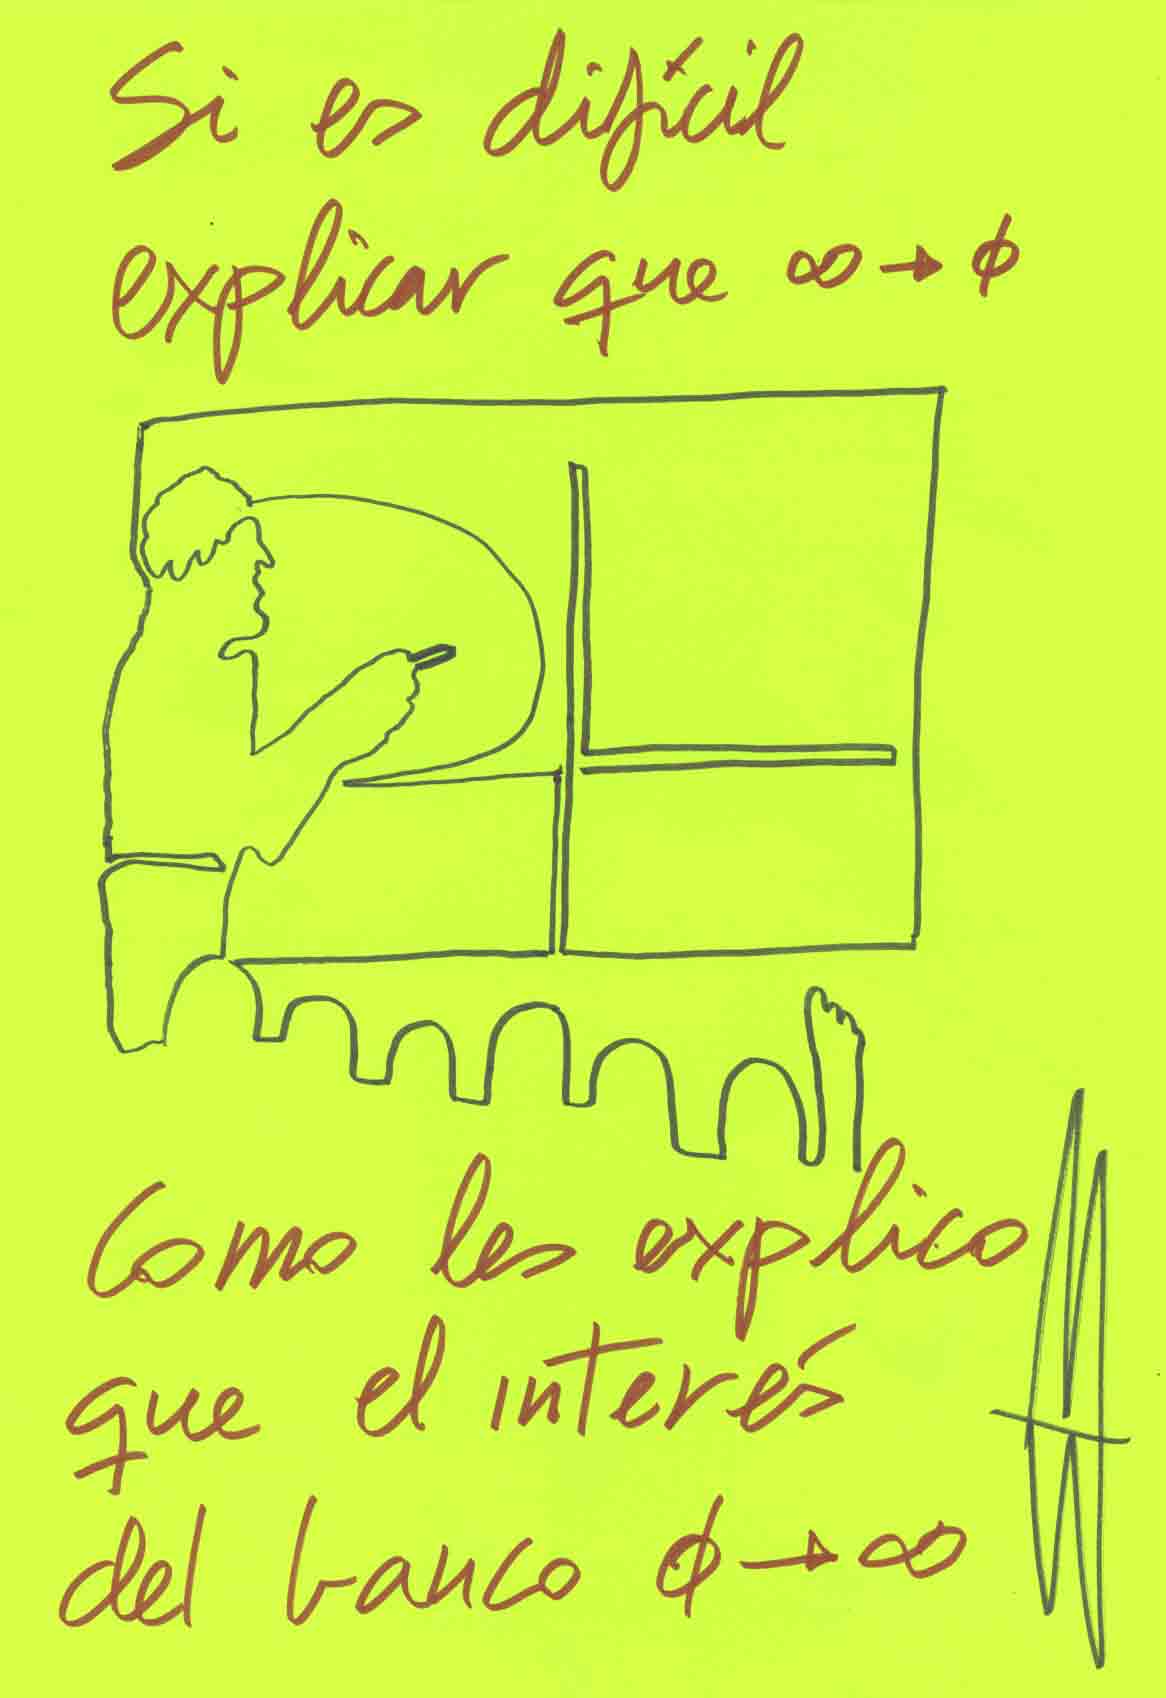 Si es difícil
explicar que ∞ → ϕ
Como les explico
que el interés
del banco ϕ → ∞